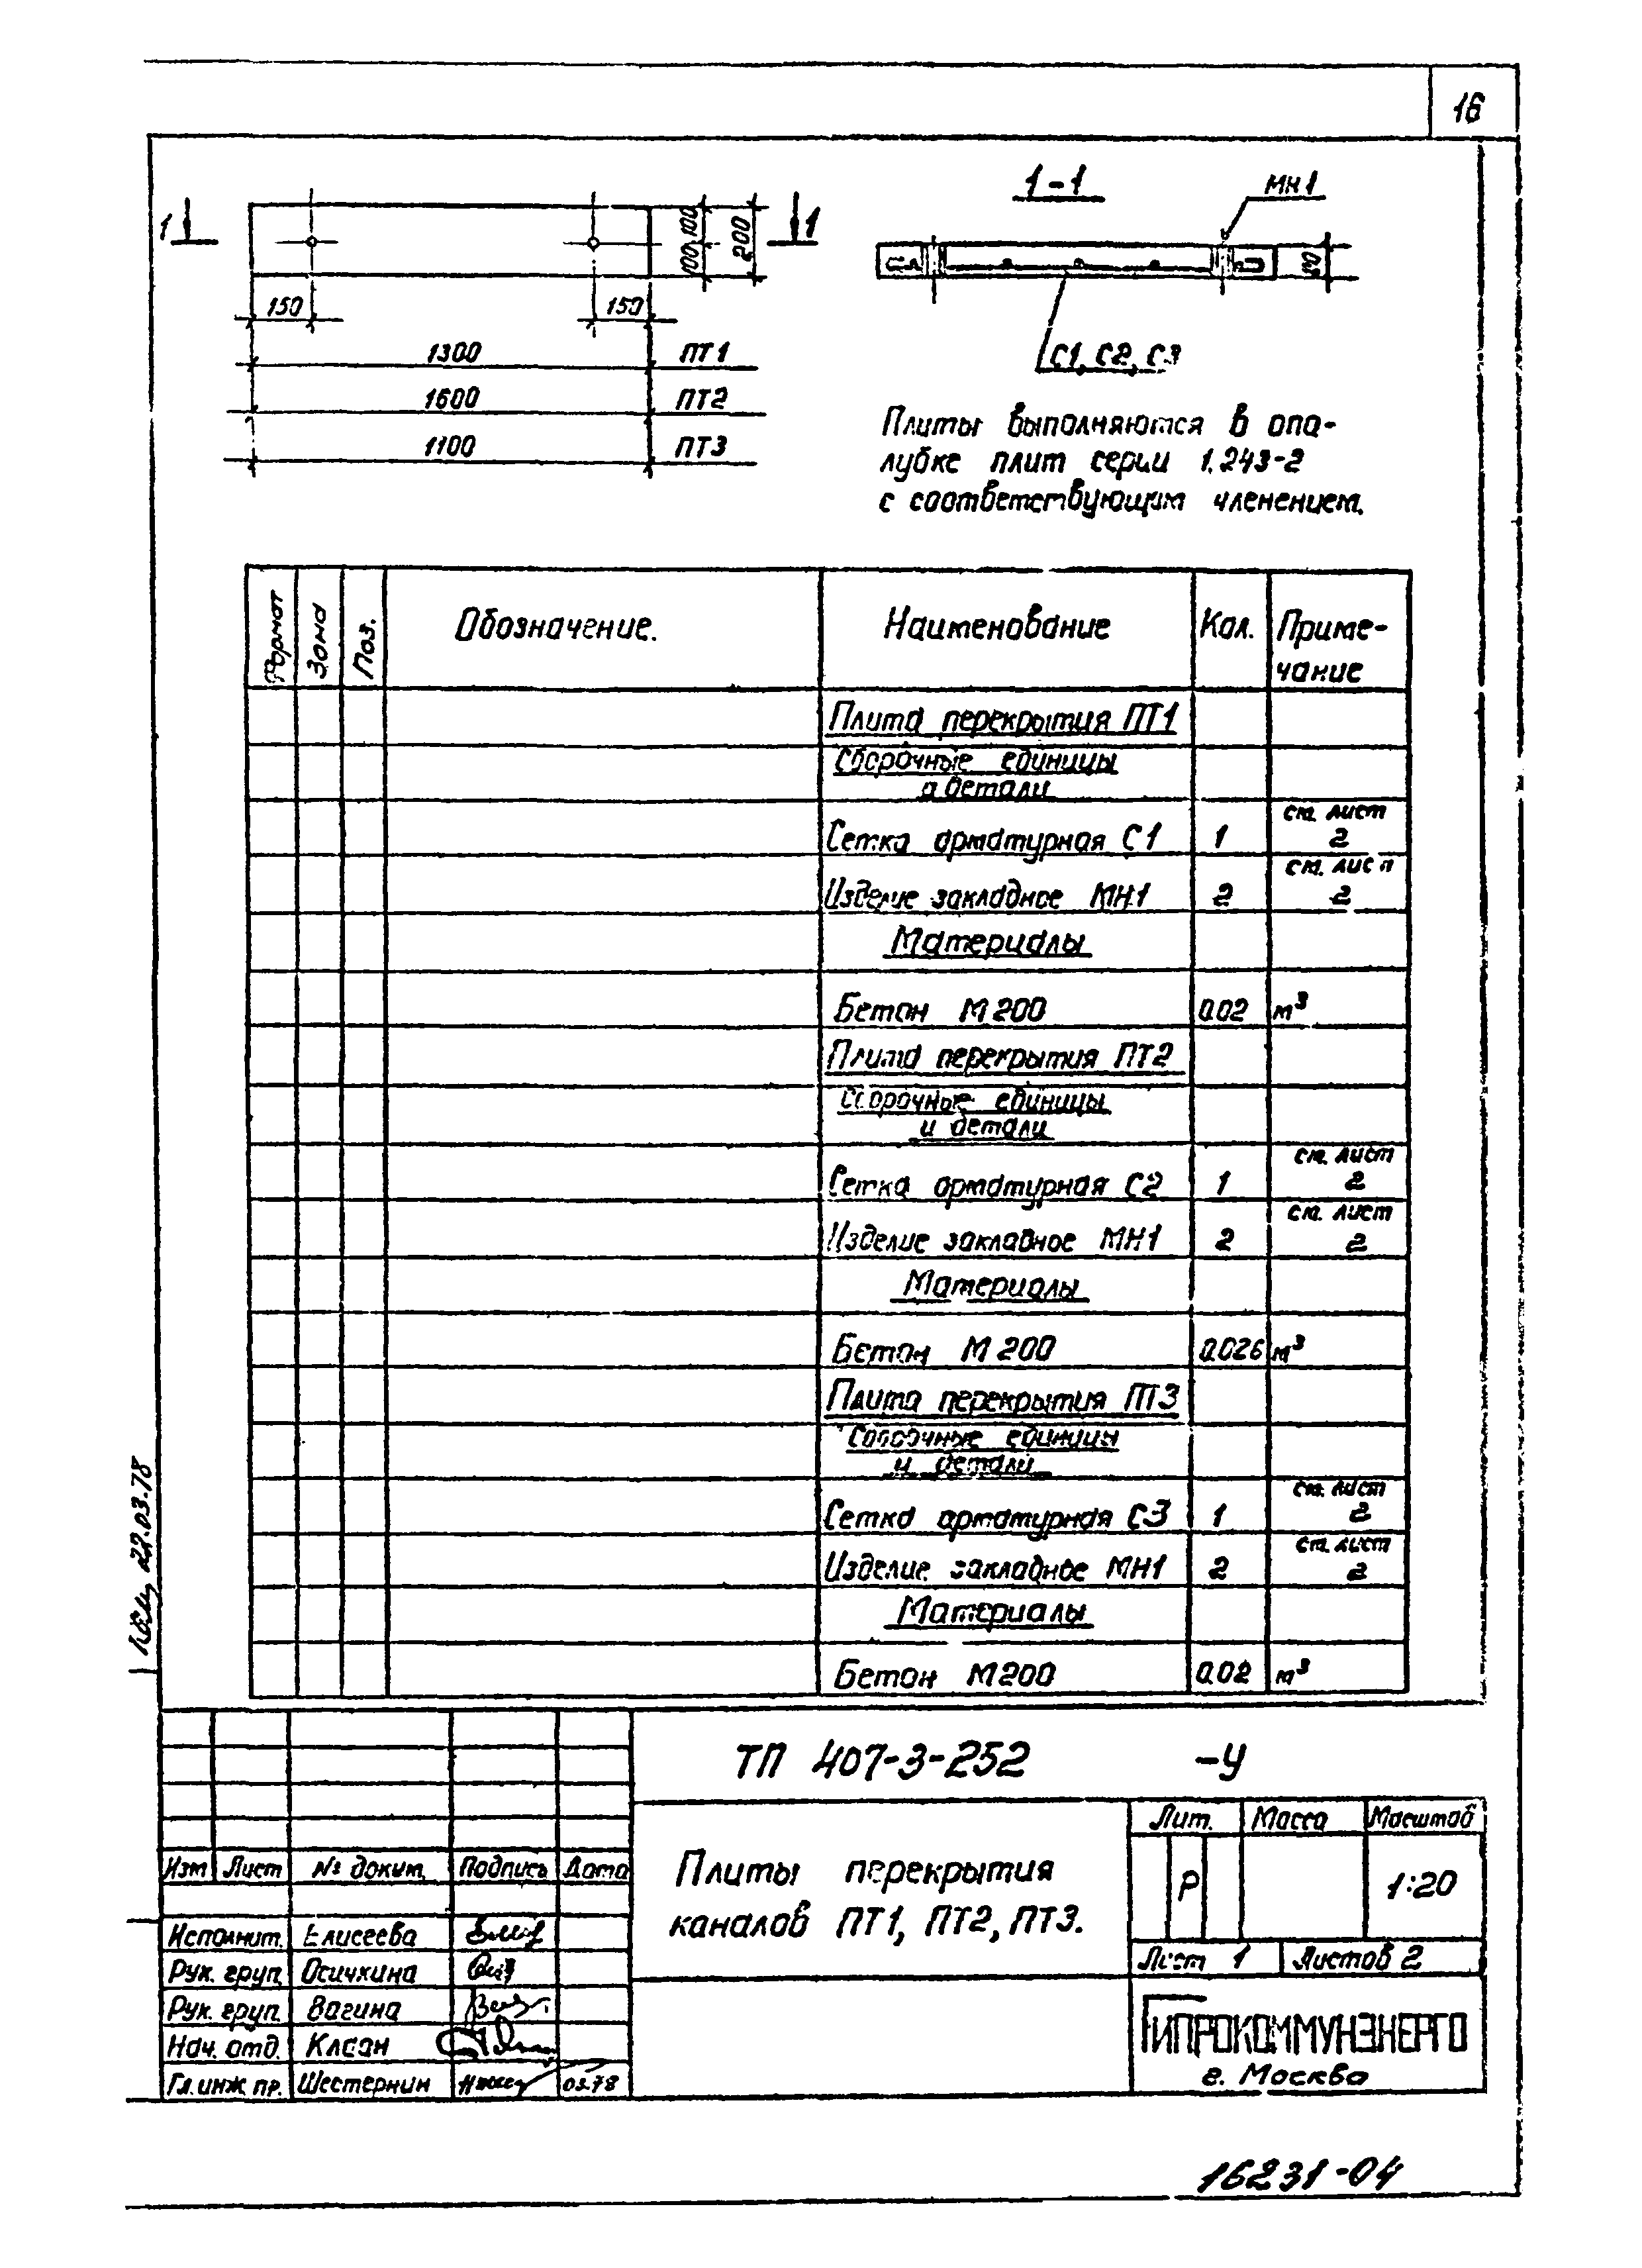 16
1
1
100 100
200
150
150
1300 ПТ1
1600 ПТ2
1100 ПТ3
1-1
МН1
С1, С2, С3
Плиты выполняются в опа-
лубке плит серии 1.243-2
с соответствующим членением.
Формат Зона Поз. Обозначение. Наименование Кол. Приме-
чание
Плита перекрытия ПТ1
Сборочные единицы
и детали
Сетка арматурная С1 1 см. лист 2
Изделие закладное МН1 2 см. лист 2
Материалы
Бетон М200 0.02 м³
Плита перекрытия ПТ2
Сборочные единицы
и детали
Сетка арматурная С2 1 см. лист 2
Изделие закладное МН1 2 см. лист 2
Материалы
Бетон М200 0.026 м³
Плита перекрытия ПТ3
Сборочные единицы
и детали
Сетка арматурная С3 1 см. лист 2
Изделие закладное МН1 2 см. лист 2
Материалы
Бетон М200 0.02 м³
22.03.78
ТП 407-3-252 -У
Изм Лист № докум. Подпись Дата
Исполнит. Елисеева
Рук. груп. Осичкина
Рук. груп. Вагина
Нач. отд. Клаан
Гл. инж. пр. Шестернин 03.78
Плиты перекрытия
каналов ПТ1, ПТ2, ПТ3.
Лит. Масса Масштаб
Р 1:20
Лист 1 Листов 2
ГИПРОКОММУНЭНЕРГО
г. Москва
16231-04